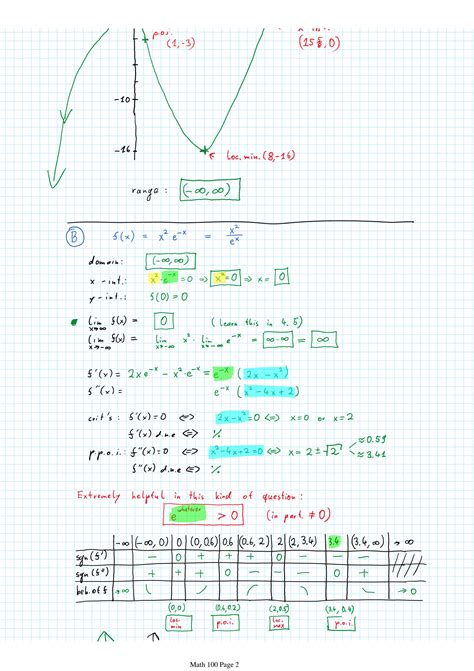 p.o.i.
(1,-3)
(15.5, 0)
-10
-16
Loc. min. (8,-16)
range : (-∞, ∞)
B f(x) = x² e^-x = x²/e^x
domain: (-∞, ∞)
x - int.: x² · e^-x = 0 => x² = 0 => x = 0
y - int.: f(0) = 0
lim x→∞ f(x) = 0 (Learn this in 4.5)
lim x→-∞ f(x) = lim x→-∞ x² · lim x→-∞ e^-x = ∞·∞ = ∞
f'(x) = 2x e^-x - x² · e^-x = e^-x (2x - x²)
f''(x) = e^-x (x² - 4x + 2)
crit's : f'(x) = 0 <=> 2x - x² = 0 <=> x = 0 or x = 2
f'(x) d.n.e <=> ./.
p.p.o.i.: f''(x) = 0 <=> x² - 4x + 2 = 0 <=> x = 2 ± √2 ≈ 0.59 ≈ 3.41
f''(x) d.n.e <=> ./.
Extremely helpful in this kind of question :
e^whatever > 0 (in part. ≠ 0)
-∞ (-∞, 0) 0 (0, 0.6) 0.6 (0.6, 2) 2 (2, 3.4) 3.4 (3.4, ∞) → ∞
sgn (f') - 0 + + + 0 - - -
sgn (f'') + + + 0 - - - 0 +
beh. of f → ∞ → 0
(0,0) (0.6, 0.2) (2, 0.5) (3.4, 0.4)
loc. min p.o.i. loc. max p.o.i.
Math 100 Page 2